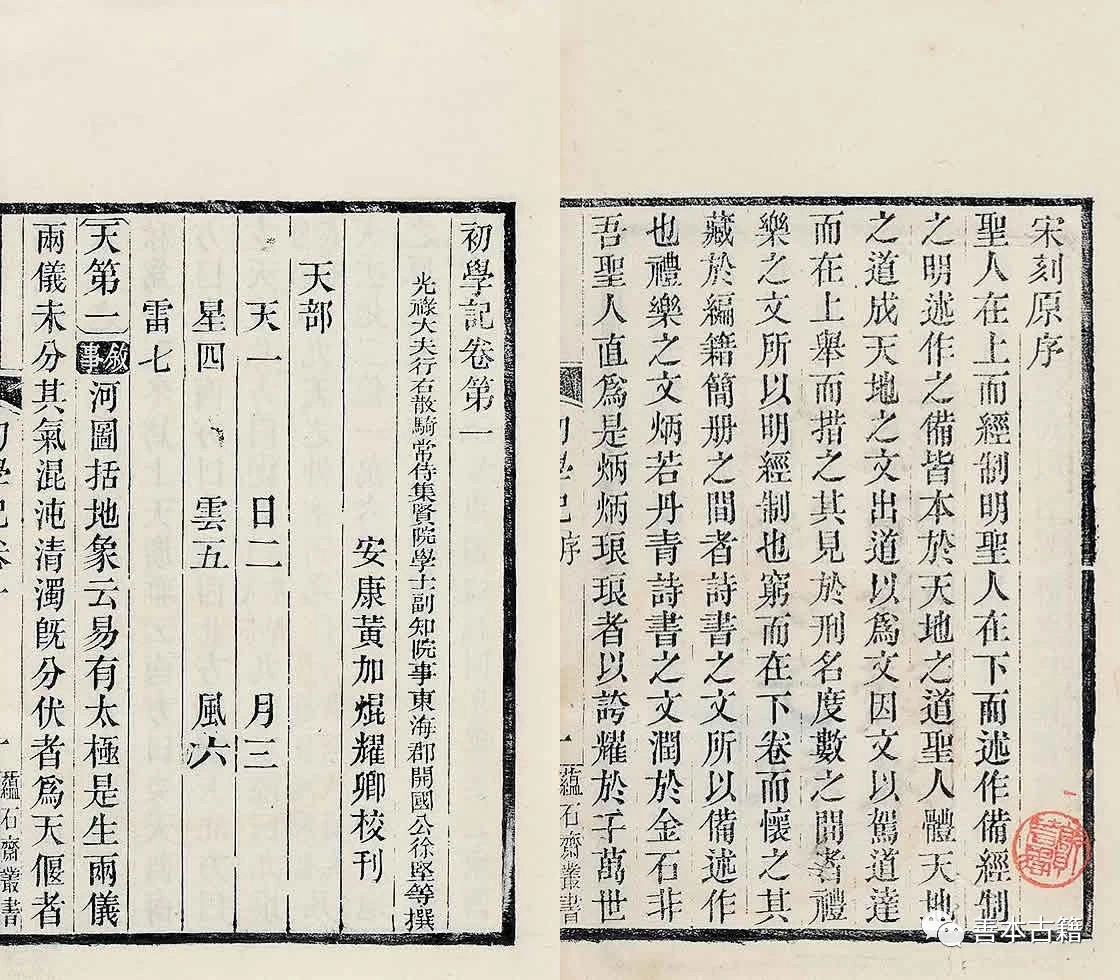 宋刻原序
聖人在上而經制明聖人在下而述作備經制
之明述作之備皆本於天地之道聖人體天地
之道成天地之文出道以爲文因文以駕道達
而在上舉而措之其見於刑名度數之間者禮
樂之文所以明經制也窮而在下卷而懷之其
藏於編籍簡册之間者詩書之文所以備述作
也禮樂之文炳若丹青詩書之文潤於金石非
吾聖人直爲是炳炳琅琅者以誇耀於千萬世
初學記序
一
蘊石齋叢書
初學記卷第一
光祿大夫行右散騎常侍集賢院學士副知院事東海郡開國公徐堅等撰
安康黃加焜耀卿校刊
天部
天一 日二 月三
星四 雲五 風六
雷七
天第一 敘事 河圖括地象云易有太極是生兩儀
兩儀未分其氣混沌清濁既分伏者爲天偃者
初學記卷一
一
蘊石齋叢書
善本古籍